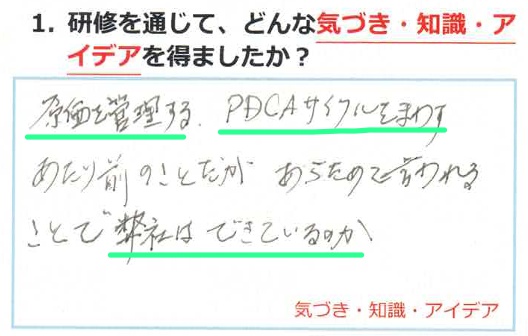 1. 研修を通じて、どんな気づき・知識・ア
イデアを得ましたか？
原価を管理する、PDCAサイクルをまわす
あたり前のことだが あらためて言われる
ことで 弊社は できているのか
気づき・知識・アイデア